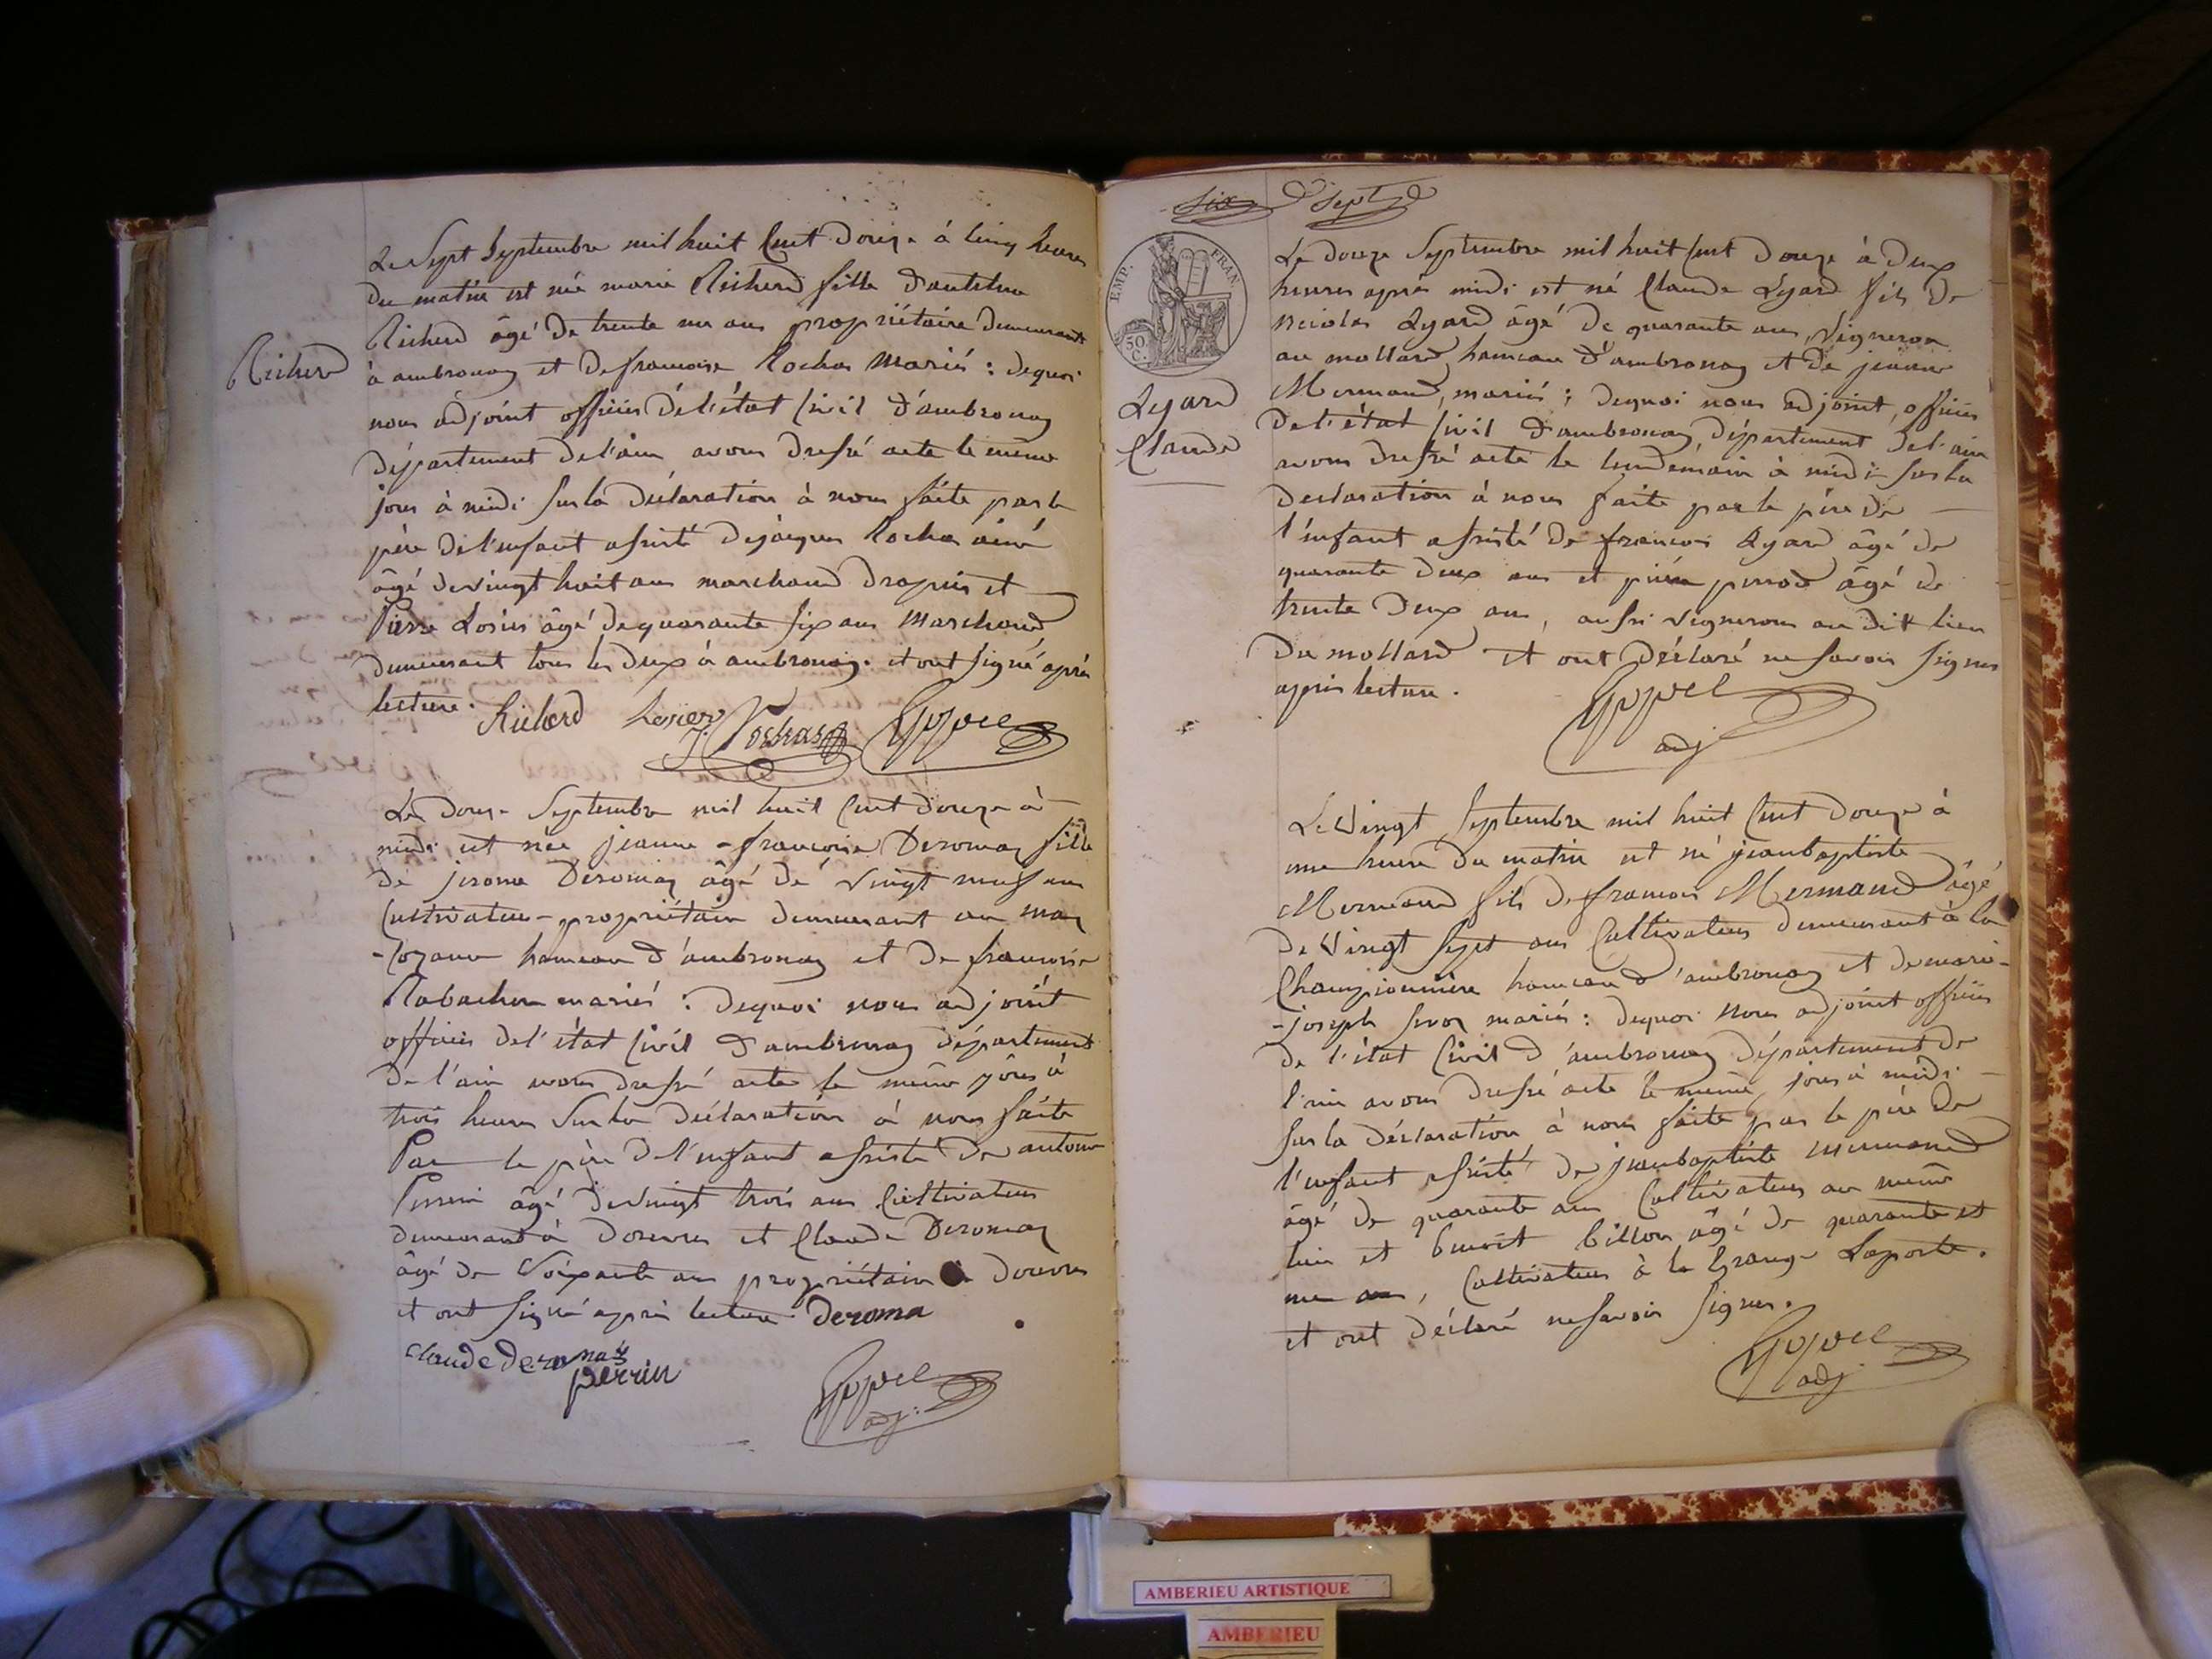 Richerd
Le Sept Septembre mil huit Cent douze à Cinq heures
du matin est née marie Richerd fille d'antelme
Richerd âgé de trente un ans propriétaire demeurant
à ambronay et de francoise Rochas mariés : dequoi
nous adjoint officier de l'état Civil d'ambronay
département de l'ain avons dressé acte le même
jour à midi sur la déclaration à nous faite par le
père de l'enfant assisté de jacques Rochas ainé
âgé de vingt huit ans marchand drapier et
Pierre Losier âgé de quarante six ans Marchand
demeurant tous les deux à ambronay. et ont signé après
lecture. Richerd Losier J. Rochas
Le douze Septembre mil huit Cent douze à
midi est née jeanne-francoise Deromaz fille
de jerome Deromaz âgé de vingt neuf ans
Cultivateur-propriétaire demeurant au
hameau d'ambronay et de francoise
mariés : dequoi nous adjoint
officier de l'état Civil d'ambronay département
de l'ain avons dressé acte le même jour à
trois heures Sur la déclaration à nous faite
Par le père de l'enfant assisté de antoine
Perrin âgé de vingt trois ans Cultivateur
demeurant à douvres et Claude Deromaz
âgé de Soixante ans propriétaire à douvres
et ont signé après lecture. deroma
claude deromaz
perrin
adj.
six Sept
EMP. FRAN.
50 C.
Lyard
Claude
Le douze Septembre mil huit Cent douze à deux
heures après midi est né Claude Lyard fils de
nicolas Lyard âgé de quarante ans, Vigneron
au mollard hameau d'ambronay et de jeanne
Mermand, mariés ; dequoi nous adjoint, officier
de l'état Civil d'ambronay, département de l'ain
avons dressé acte le lendemain à midi sur la
declaration à nous faite par le père de
l'enfant assisté de francois Lyard âgé de
quarante deux ans et âgé de
trente deux ans, aussi vignerons au dit lieu
du mollard et ont déclaré ne savoir signer
après lecture.
adj
Le Vingt Septembre mil huit Cent douze à
une heure du matin est né jeanbaptiste
Mermand fils de francois Mermand âgé
de Vingt Sept ans Cultivateur demeurant à la
Championnière hameau d'ambronay et de marie
-joseph mariés : dequoi Nous adjoint officier
de l'état Civil d'ambronay département de
l'ain avons dressé acte le même jour à midi
sur la déclaration à nous faite par le père de
l'enfant assisté de jeanbaptiste mermand
âgé de quarante ans Cultivateur au même
lieu et benoit billon âgé de quarante et
un ans, Cultivateur à la Grange Laporte.
et ont déclaré ne savoir signer.
adj
AMBERIEU ARTISTIQUE
AMBERIEU